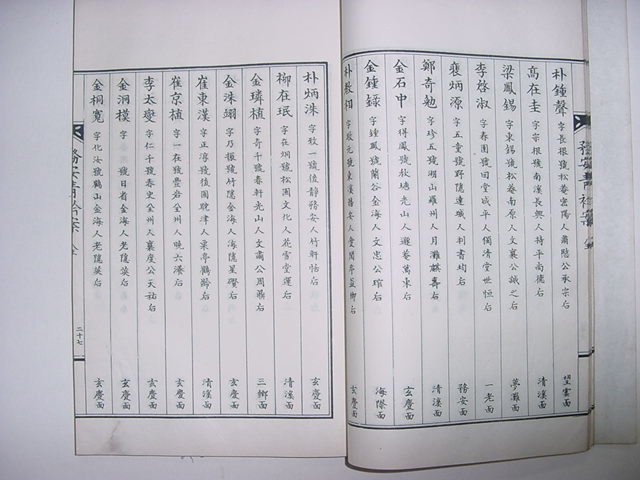 朴鍾聲 字長根號松菴密陽人蕭愍公承宗后 望雲面
高在圭 字宗根號南濱長興人持平尚德后 清溪面
梁鳳錫 字東錫號松菴南原人文襄公誠之后 夢灘面
李啓淑 字春圃號田堂咸平人儞清堂世恒后 一老面
裵炳源 字五重號野隱達城人判書均后 務安面
鄭奇勉 字珍五號明山羅州人月灘麒壽后 清溪面
金石中 字得鳳號牧塘光山人遯菴萬東后 玄慶面
金鍾錄 字鍾鳳號蘭谷金海人文忠公琯后 海際面
朴炳洙 字敬一號後靜務安人竹軒恬后 玄慶面
柳在珉 字在炯號松圃文化人花雪堂運后 清溪面
金璘植 字奇千號春軒光山人文肅公周鼎后 三鄉面
金洙翊 字乃振號竹隱金海人海隱星礫后 玄慶面
崔東漢 字正淳號後圃耽津人菜亭鶴齡后 清溪面
崔京植 字一在號豊岩全州人晚六瀁后 玄慶面
李太燮 字仁千號春史全州人襄度公天祐后 玄慶面
金洞模 字 號日省金海人老隱 后 玄慶面
金桐寬 字化汝號鶴山金海人老隱 后 玄慶面
務安青衿案
二十七